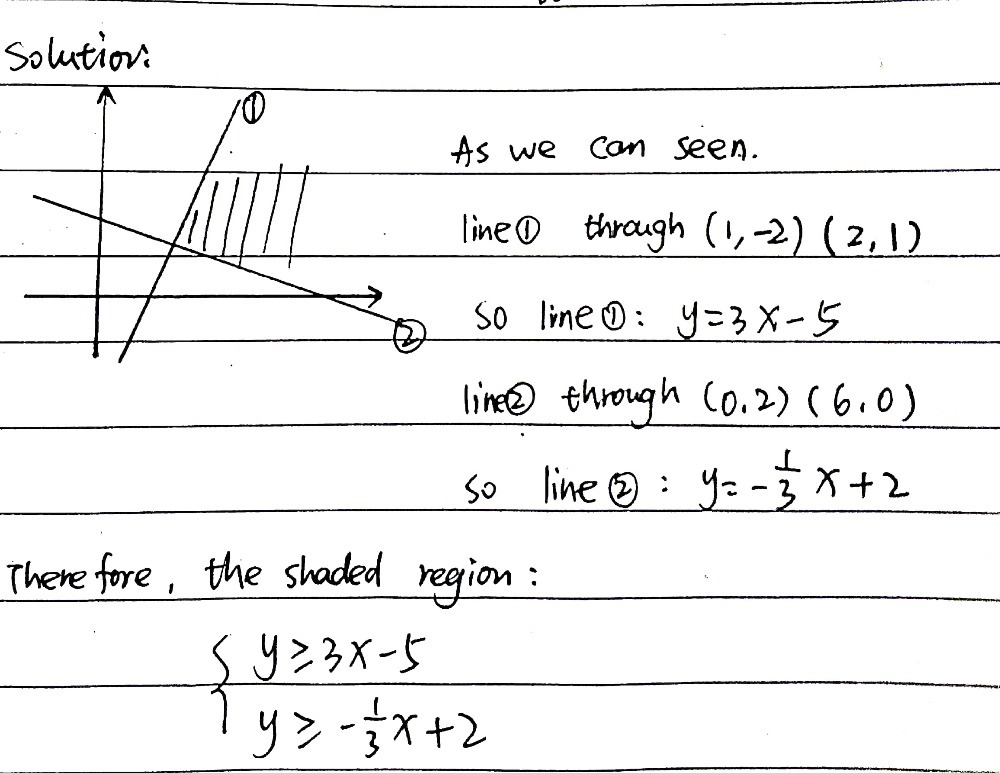 Solution:
①
②
As we can seen.
line① through (1,-2) (2,1)
so line①: y=3x-5
line② through (0.2) (6.0)
so line②: y=-1/3 x+2
Therefore, the shaded region:
{ y≥3x-5
y≥-1/3 x+2